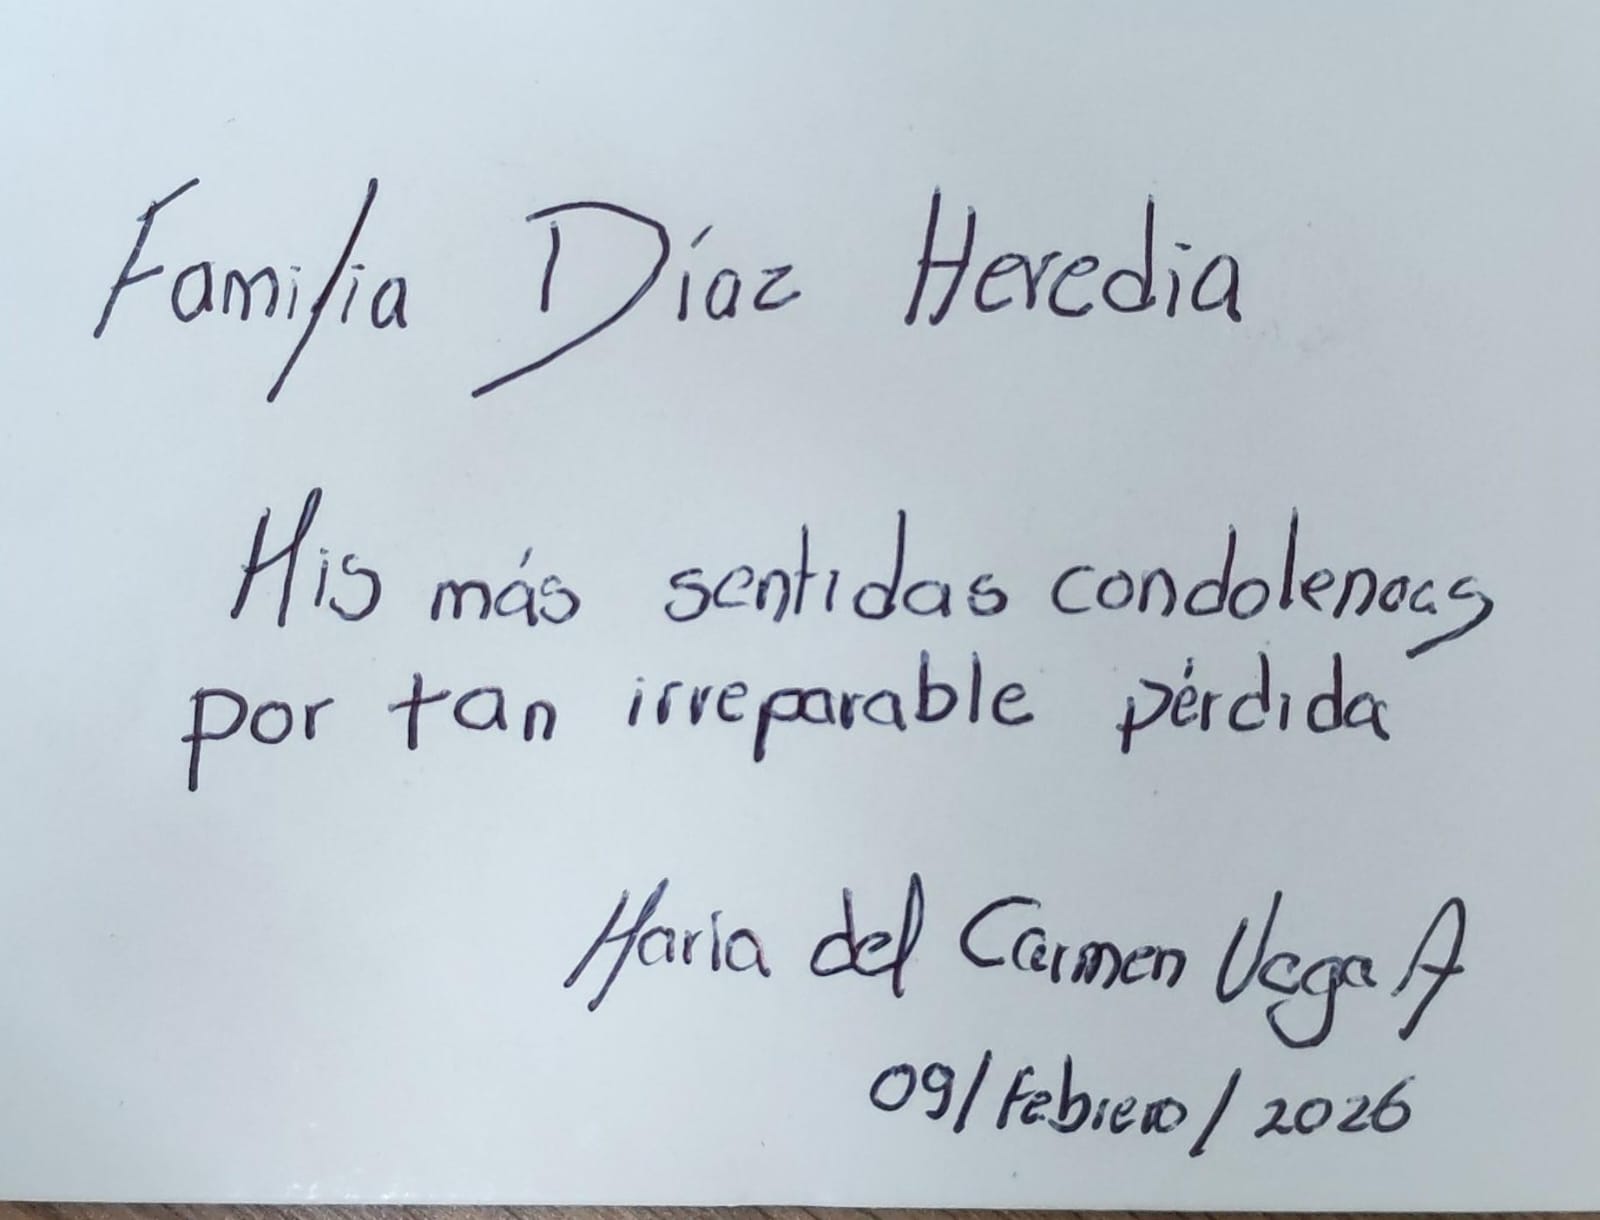 Familia Díaz Heredia
Mis más sentidas condolencias
por tan irreparable pérdida
María del Carmen Vega A
09/Febrero/2026